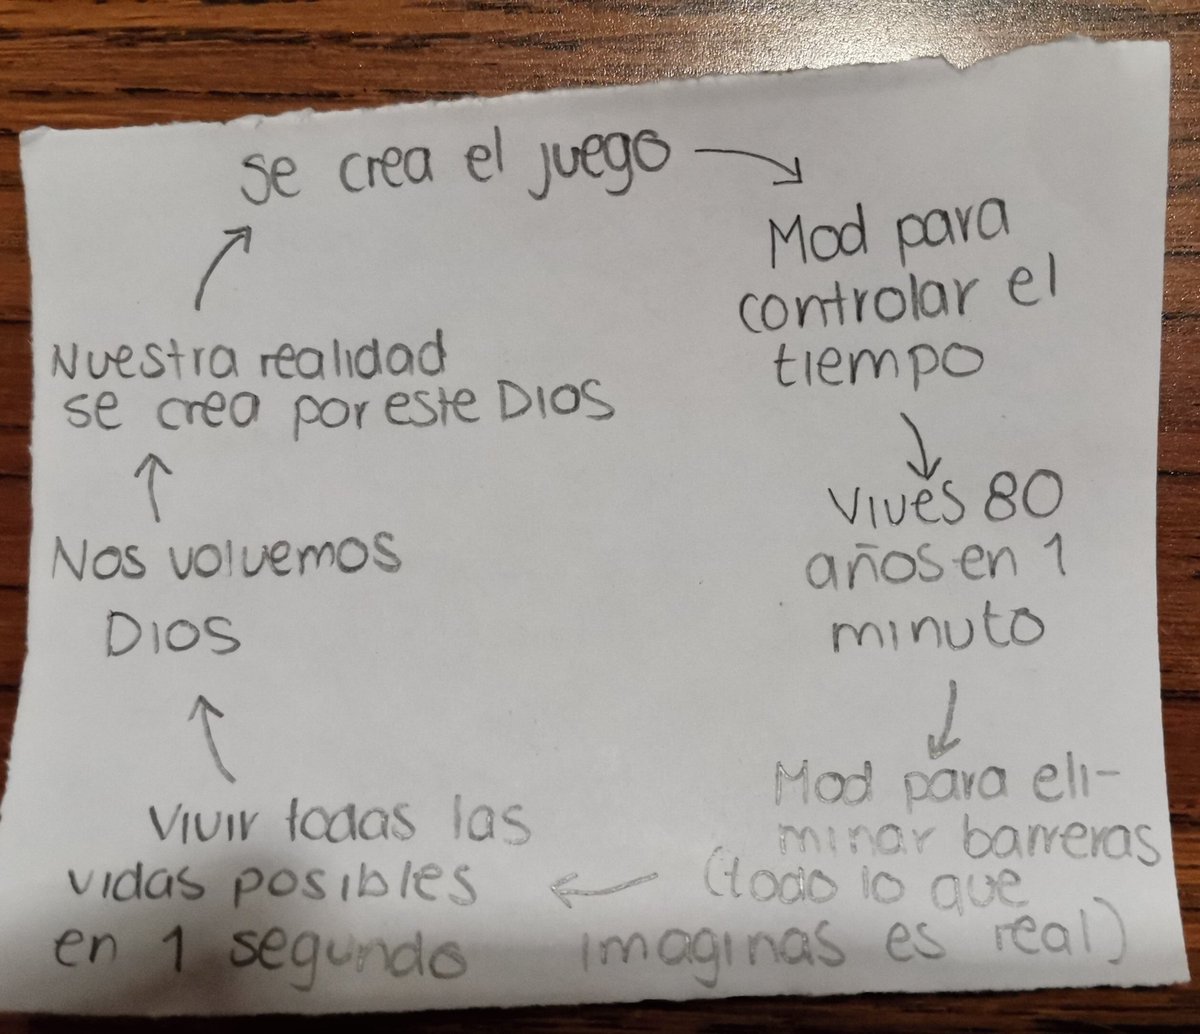 se crea el juego
Mod para
controlar el
tiempo
Vives 80
años en 1
minuto
Mod para eli-
minar barreras
(todo lo que
imaginas es real)
Vivir todas las
vidas posibles
en 1 segundo
Nos volvemos
DIOS
Nuestra realidad
se crea por este DIOS